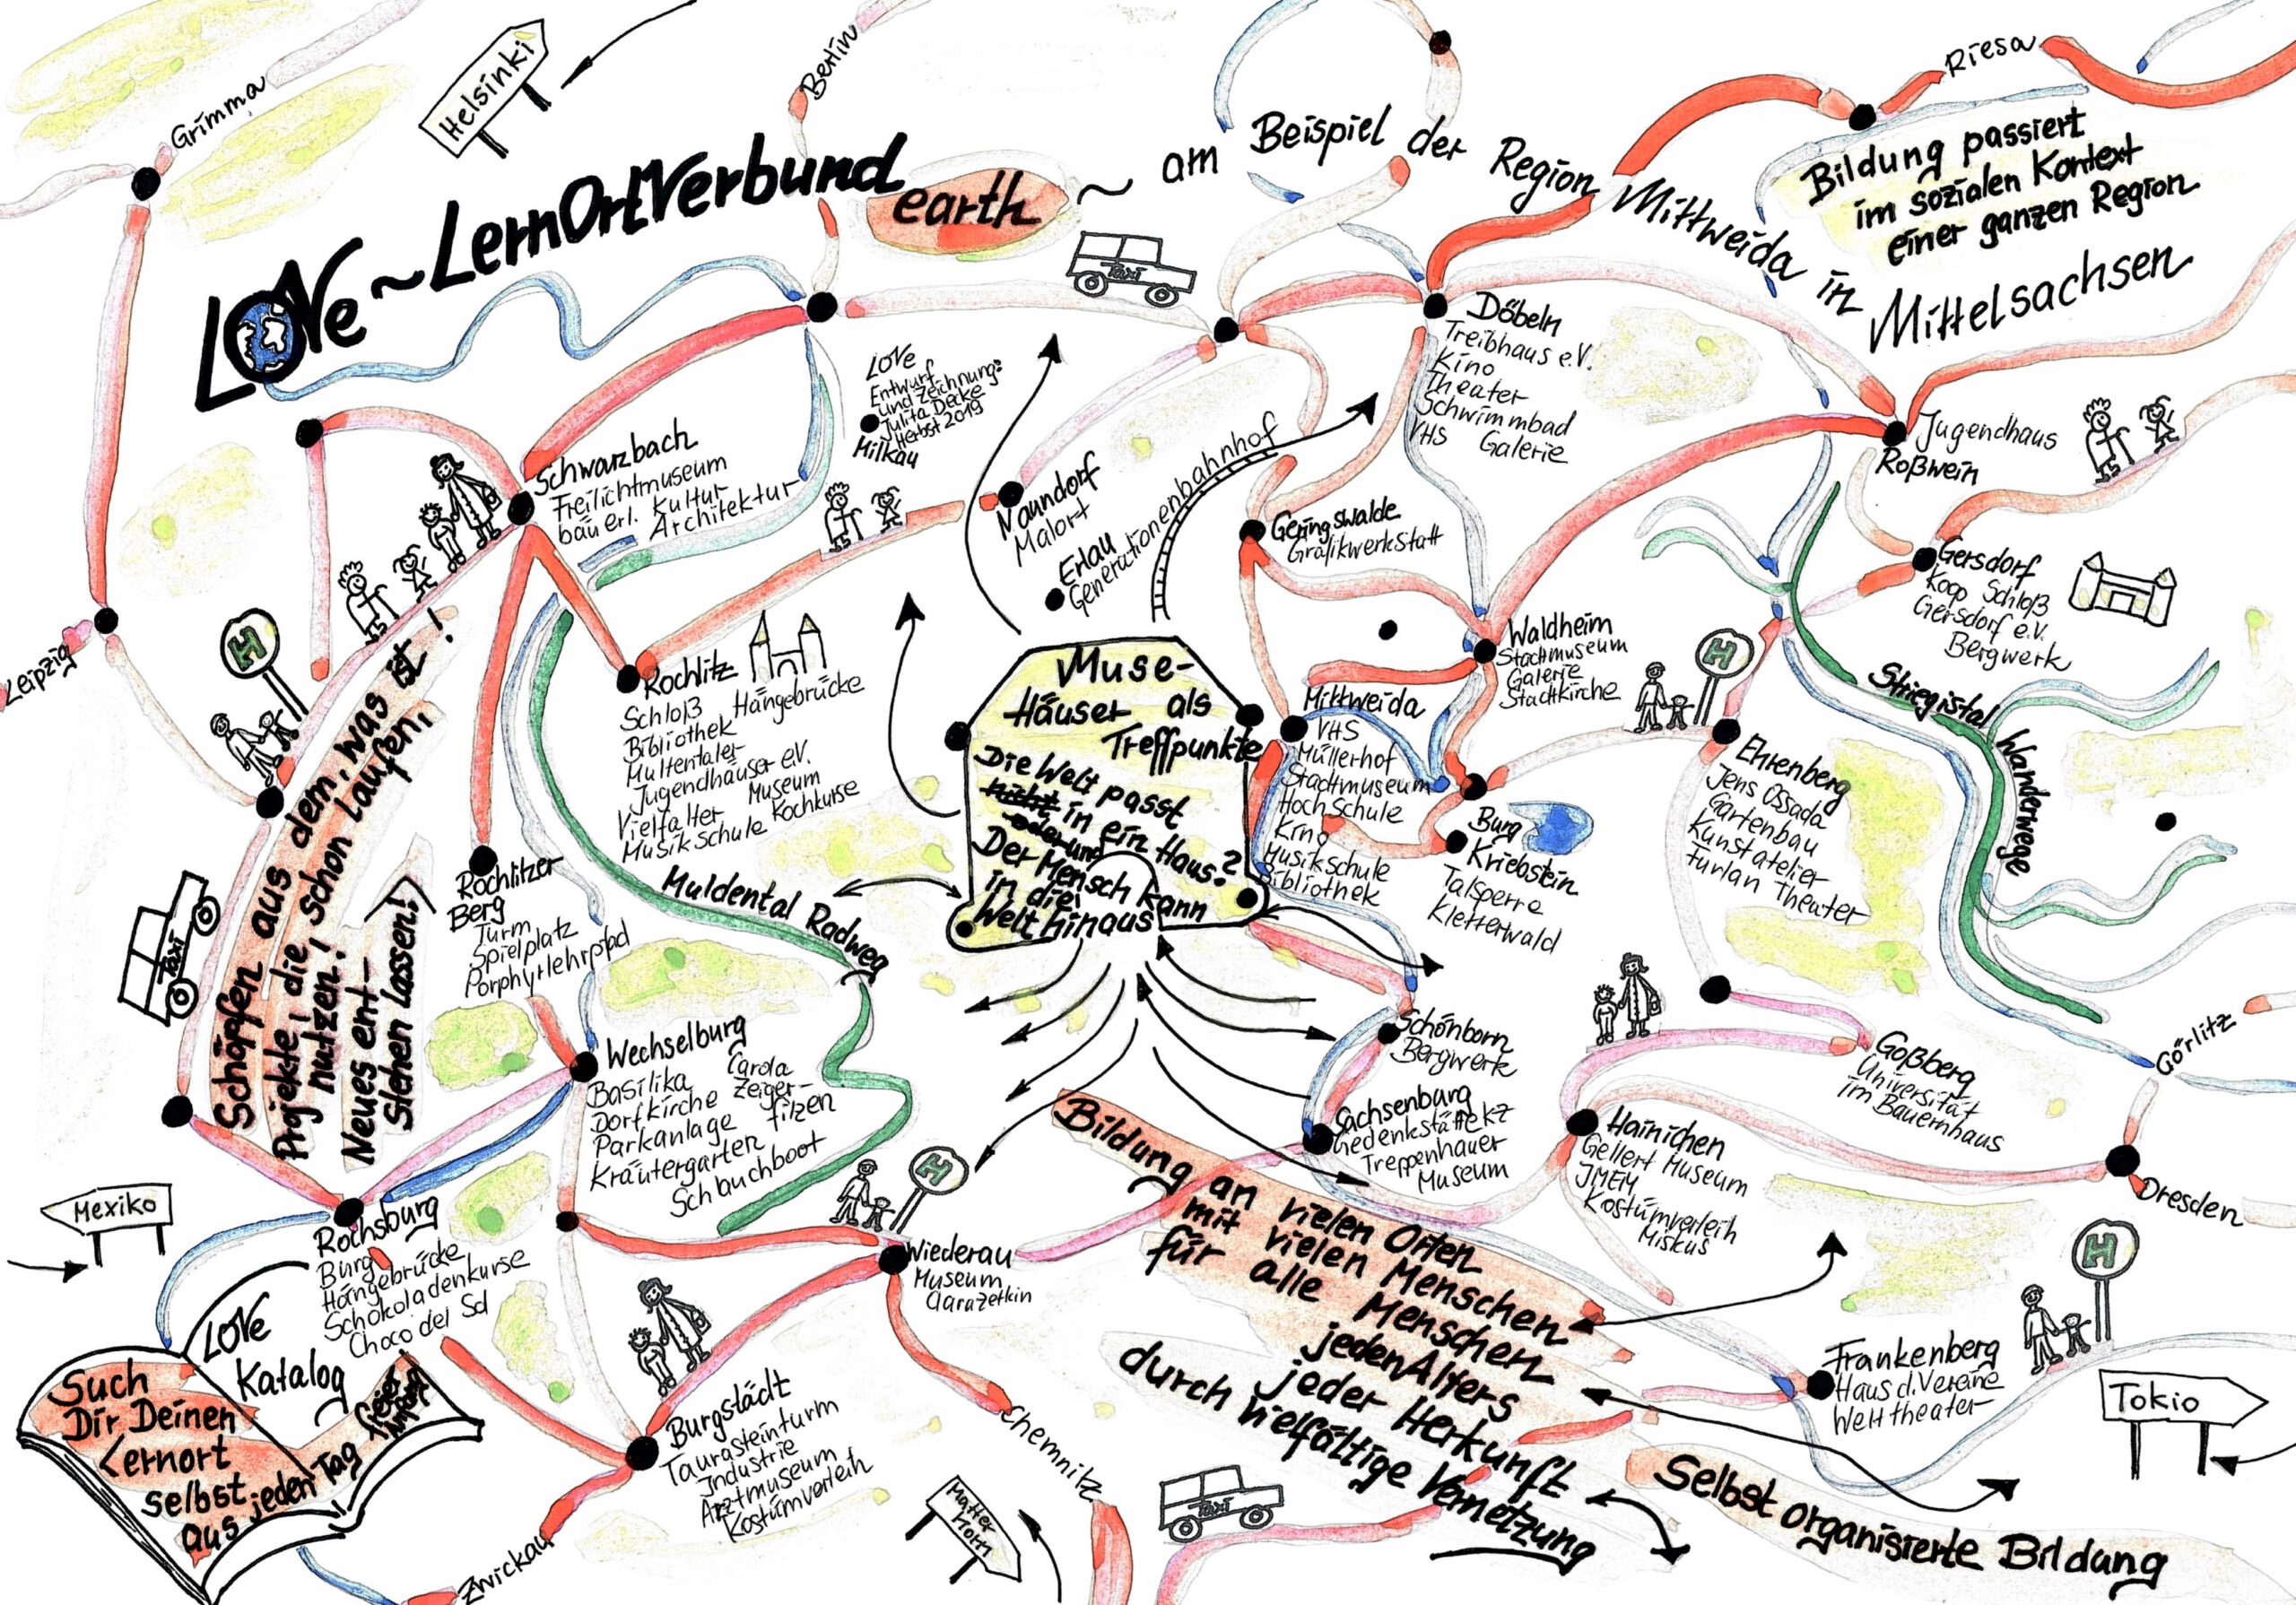 Grimma
Helsinki
Berlin
Riesa
LOVe ~ LernOrtVerbund
earth
~ am Beispiel der Region Mittweida in
Mittelsachsen
Bildung passiert
im sozialen Kontext
einer ganzen Region
Taxi
LOVe
Entwurf
und Zeichnung:
Julita Decke
Herbst 2019
Milkau
Döbeln
Treibhaus e.V.
Kino
Theater
Schwimmbad
VHS Galerie
Jugendhaus
Roßwein
Schwarzbach
Freilichtmuseum
bäuerl. Kultur
Architektur
Naundorf
Malort
Erlau
Generationenbahnhof
Geringswalde
Grafikwerkstatt
Gersdorf
Koop Schloß
Gersdorf e.V.
Bergwerk
Leipzig
H
Rochlitz
Schloß Hängebrücke
Bibliothek
Muldentaler
Jugendhäuser e.V.
Vielfalter Museum
Musikschule Kochkurse
Muse-
Häuser als
Treffpunkte
Die Welt passt
nicht in ein Haus?
oder und
Der Mensch kann
in die
Welt hinaus
Mittweida
VHS
Müllerhof
Stadtmuseum
Hochschule
Kino
Musikschule
Bibliothek
Waldheim
Stadtmuseum
Galerie
Stadtkirche
H
Striegistal Wanderwege
Burg
Kriebstein
Talsperre
Kletterwald
Ehrenberg
Jens Ossada
Gartenbau
Kunstatelier
Furlan Theater
Schöpfen aus dem, was ist!
Projekte, die schon laufen,
nutzen!
Neues ent-
stehen lassen!
Taxi
Rochlitzer
Berg
Turm
Spielplatz
Porphyrlehrpfad
Muldental Radweg
Wechselburg
Basilika Carola
Dorfkirche Zeiger-
Parkanlage filzen
Kräutergarten
Schlauchboot
Schönborn
Bergwerk
Sachsenburg
Gedenkstätte KZ
Treppenhauer
Museum
Goßberg
Universität
im Bauernhaus
Görlitz
Hainichen
Gellert Museum
Kostümverleih
Miskus
Dresden
Mexiko
Rochsburg
Burg
Hängebrücke
Schokoladenkurse
Choco del Sol
H
Wiederau
Museum
Clara Zetkin
Bildung an vielen Orten
mit vielen Menschen
für alle Menschen
jeden Alters
jeder Herkunft
durch vielfältige Vernetzung
H
Frankenberg
Haus d. Vereine
Welttheater
Tokio
LOVe
Katalog
Such
Dir Deinen
Lernort
selbst
aus jeden Tag
Burgstädt
Taurasteinturm
Industrie
Arztmuseum
Kostümverleih
Chemnitz
Zwickau
Matter
Horn
Taxi
Selbst organisierte Bildung